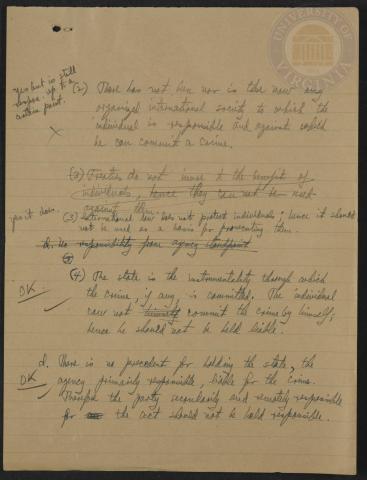 UNIVERSITY OF
VIRGINIA
yes but is still
respon. up to a
certain point.
(2) There has not been nor is there now any
organized international society to which the
individual is responsible and against which
he can commit a crime.
(3) Treaties do not inure to the benefit of
individuals, hence they can not be used
against them.
yes it does.
(3) International law does not protect individuals; hence it should
not be used as a basis for prosecuting them.
d. No responsibility from agency standpoint
(4) The state is the instrumentality through which
OK
the crime, if any, is committed. The individual
can not commit the crime by himself;
hence he should not be held liable.
d. There is no precedent for holding the state, the
OK
agency primarily responsible, liable for the crime.
Therefore the party secondarily and remotely responsible
for the act should not be held responsible.